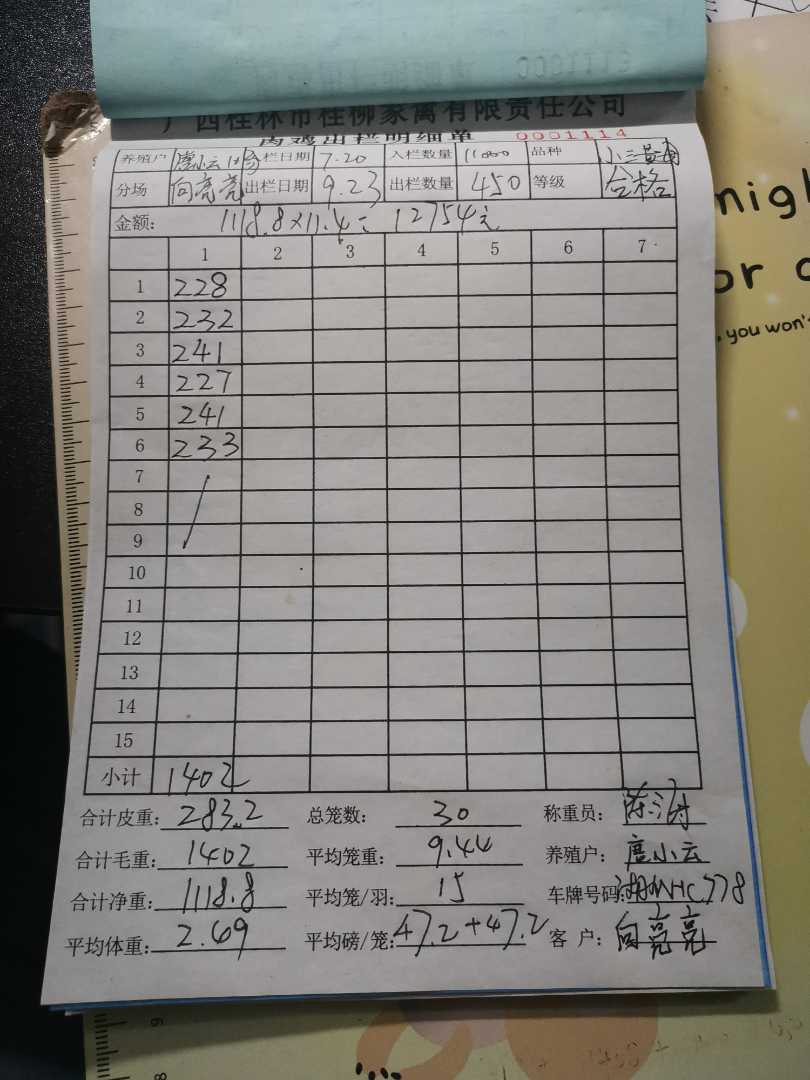 广西桂林市桂柳家禽有限责任公司
肉鸡出栏明细单 0001114
养殖户 唐小云 入栏日期 7.20 入栏数量 11000 品种 小三黄
分场 向亮亮 出栏日期 9.23 出栏数量 450 等级 合格
金额: 1118.8×11.4= 12754元
1 2 3 4 5 6 7
1 228
2 232
3 241
4 227
5 241
6 233
7
8
9
10
11
12
13
14
15
小计 1402
合计皮重: 283.2 总笼数: 30 称重员:
合计毛重: 1402 平均笼重: 9.44 养殖户: 唐小云
合计净重: 1118.8 平均笼/羽: 15 车牌号码:
平均体重: 2.49 平均磅/笼: 47.2+47.2 客 户: 向亮亮